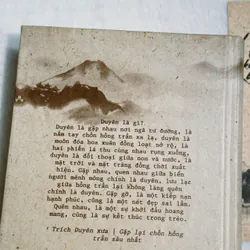 Duyên là gì?
Duyên là gặp nhau nơi ngã tư đường, là
nắm tay chốn hồng trần xa lạ, duyên là
muôn đóa hoa xuân đồng loạt nở rộ, là
hai phiến lá thu cùng nhau rụng xuống,
duyên là đối thoại giữa non và nước, là
mặt trời và mặt trăng đồng thời xuất
hiện. Gặp nhau, quen nhau giữa biển
người mênh mông chính là duyên, lưu lạc
giữa hồng trần lại không lãng quên
chính là duyên. Gặp gỡ, là một kiếp nạn
hạnh phúc, cũng là một nét đẹp sai lầm.
Quen nhau, là một sự khởi đầu hoang
mang, cũng là sự kết thúc trong trẻo.
' Trích Duyên xưa | Gặp lại chốn hồng
trần sâu nhất